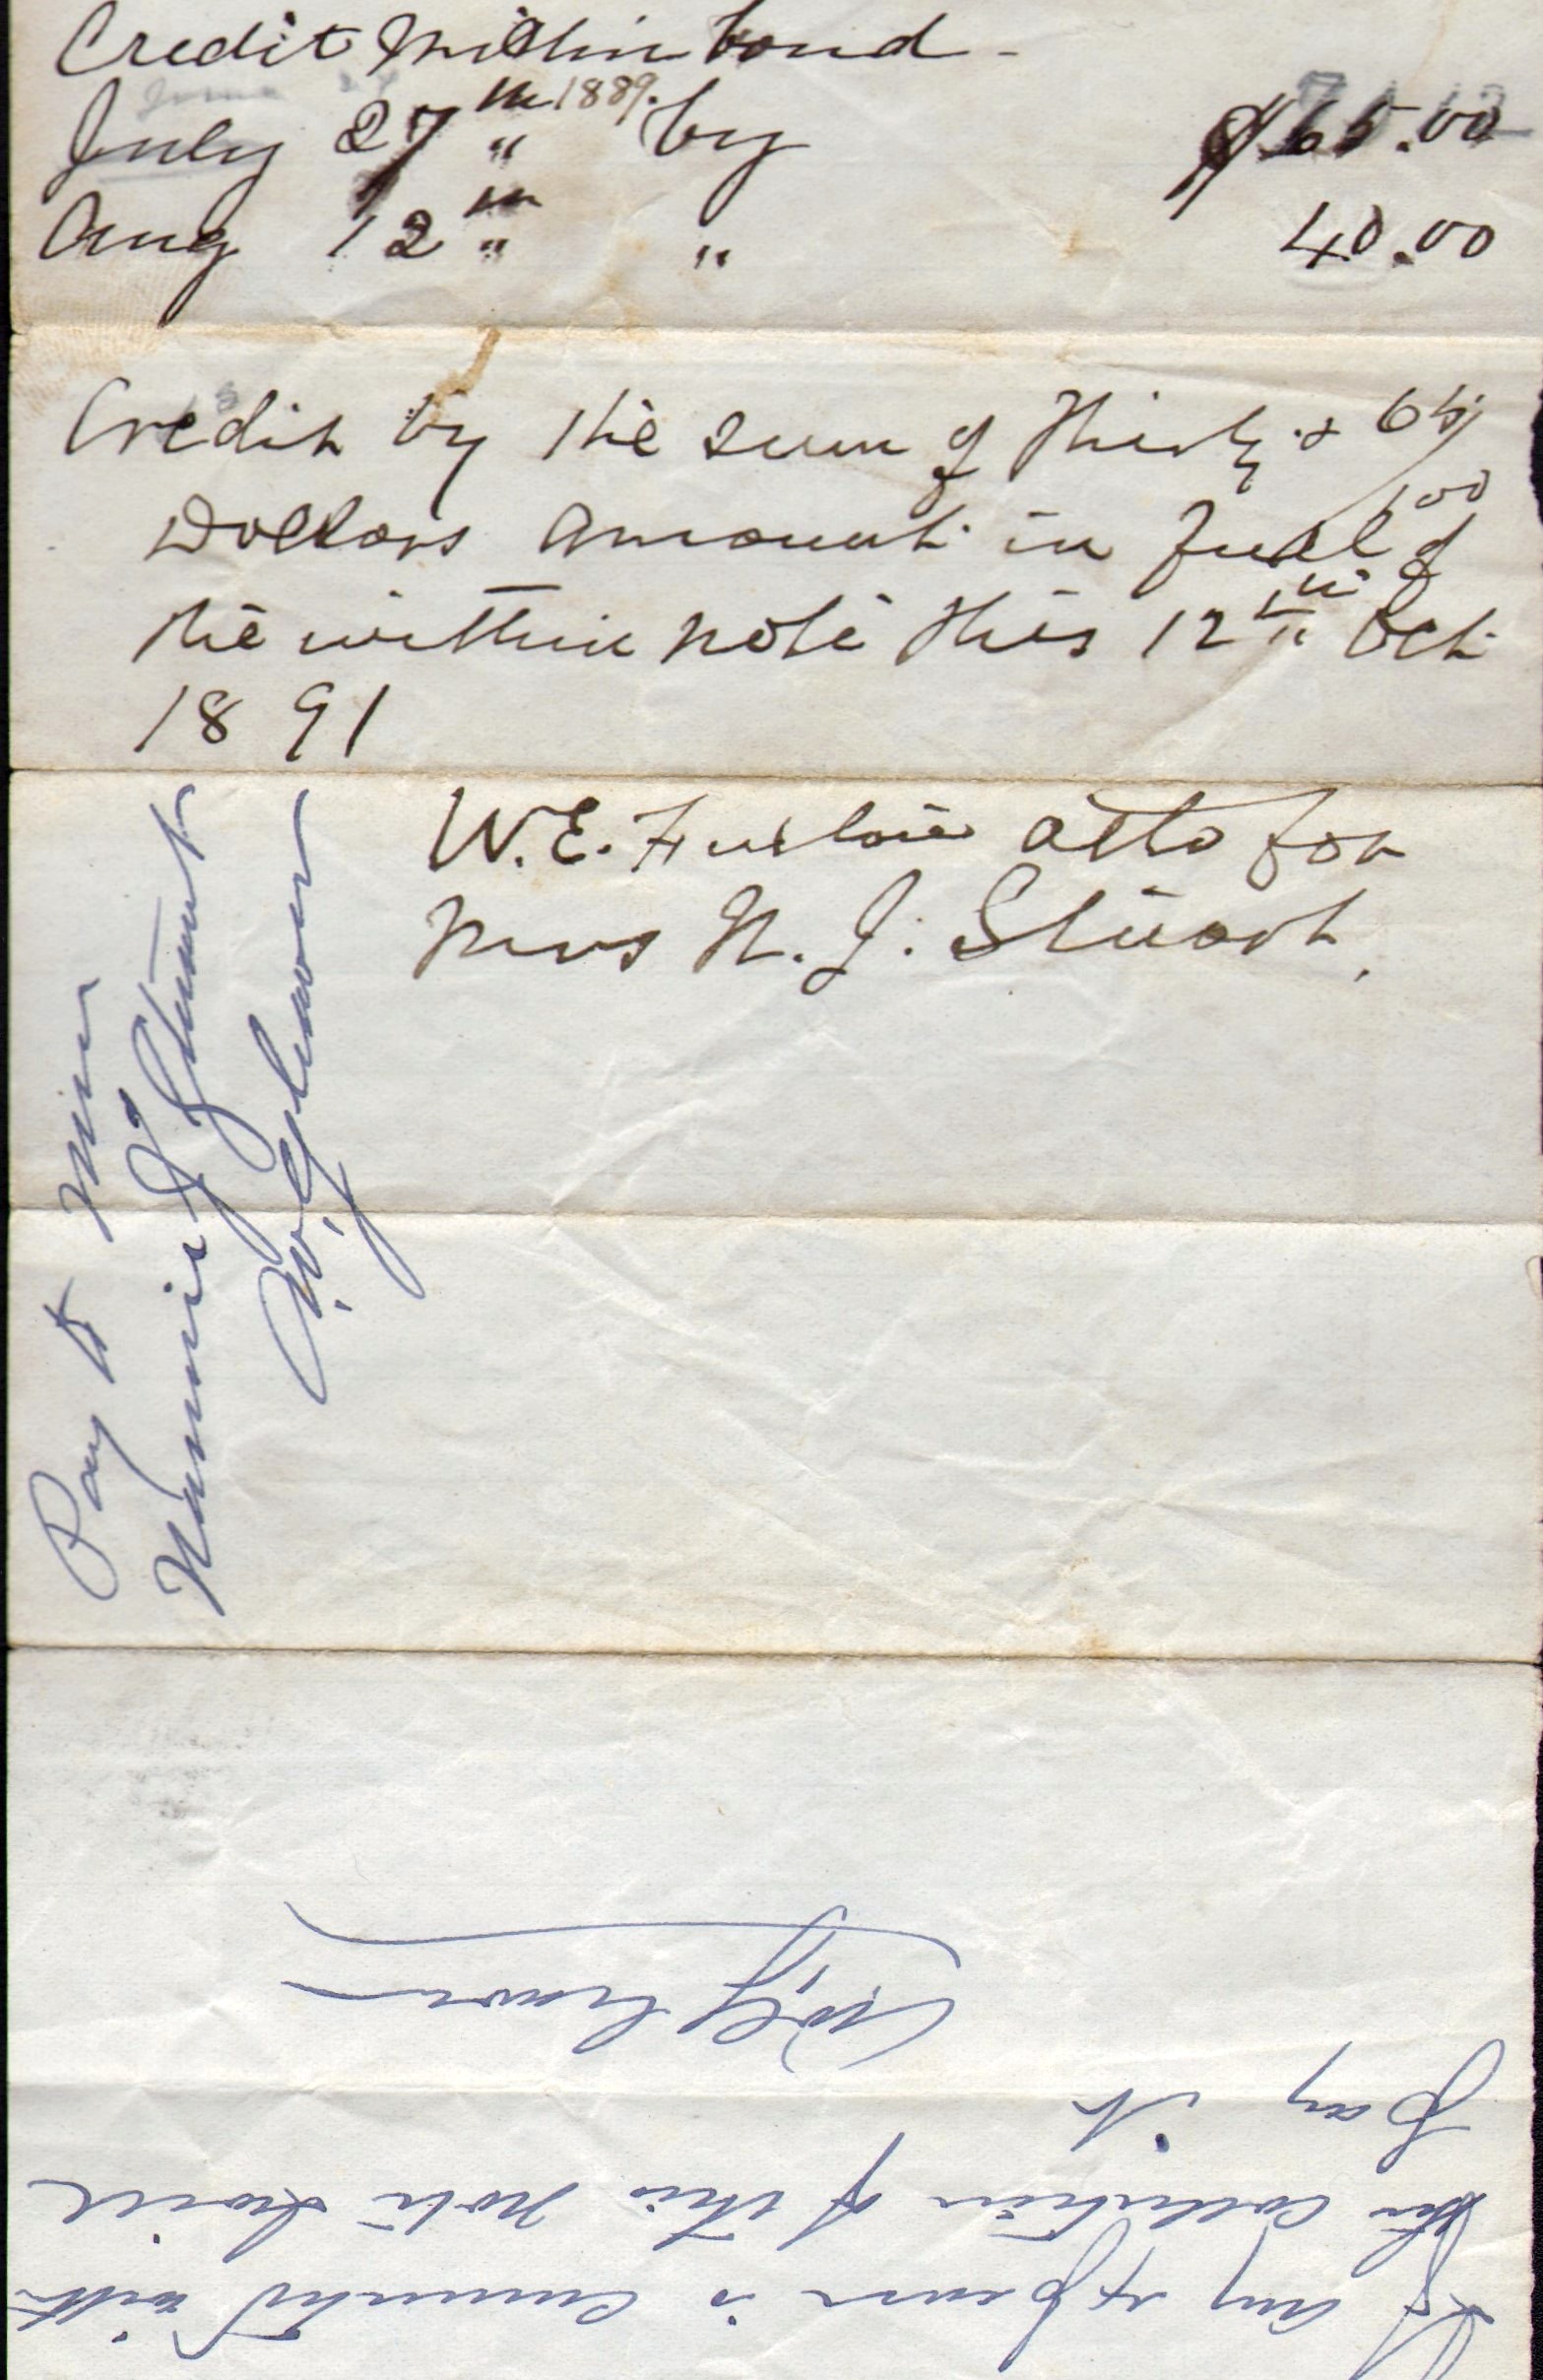 Credit within bond -
July 27th 1889. by $65.00
Aug 12th " 40.00
Credit by the sum of Thirty & 65/100
Dollars amount in full of
the within note this 12th Oct
1891
W.E. atto for
Mrs N. J. Stuart.
Pay to Miss
Nannie J Stuart
If any expense is connected with
the collection of this note I will
pay it